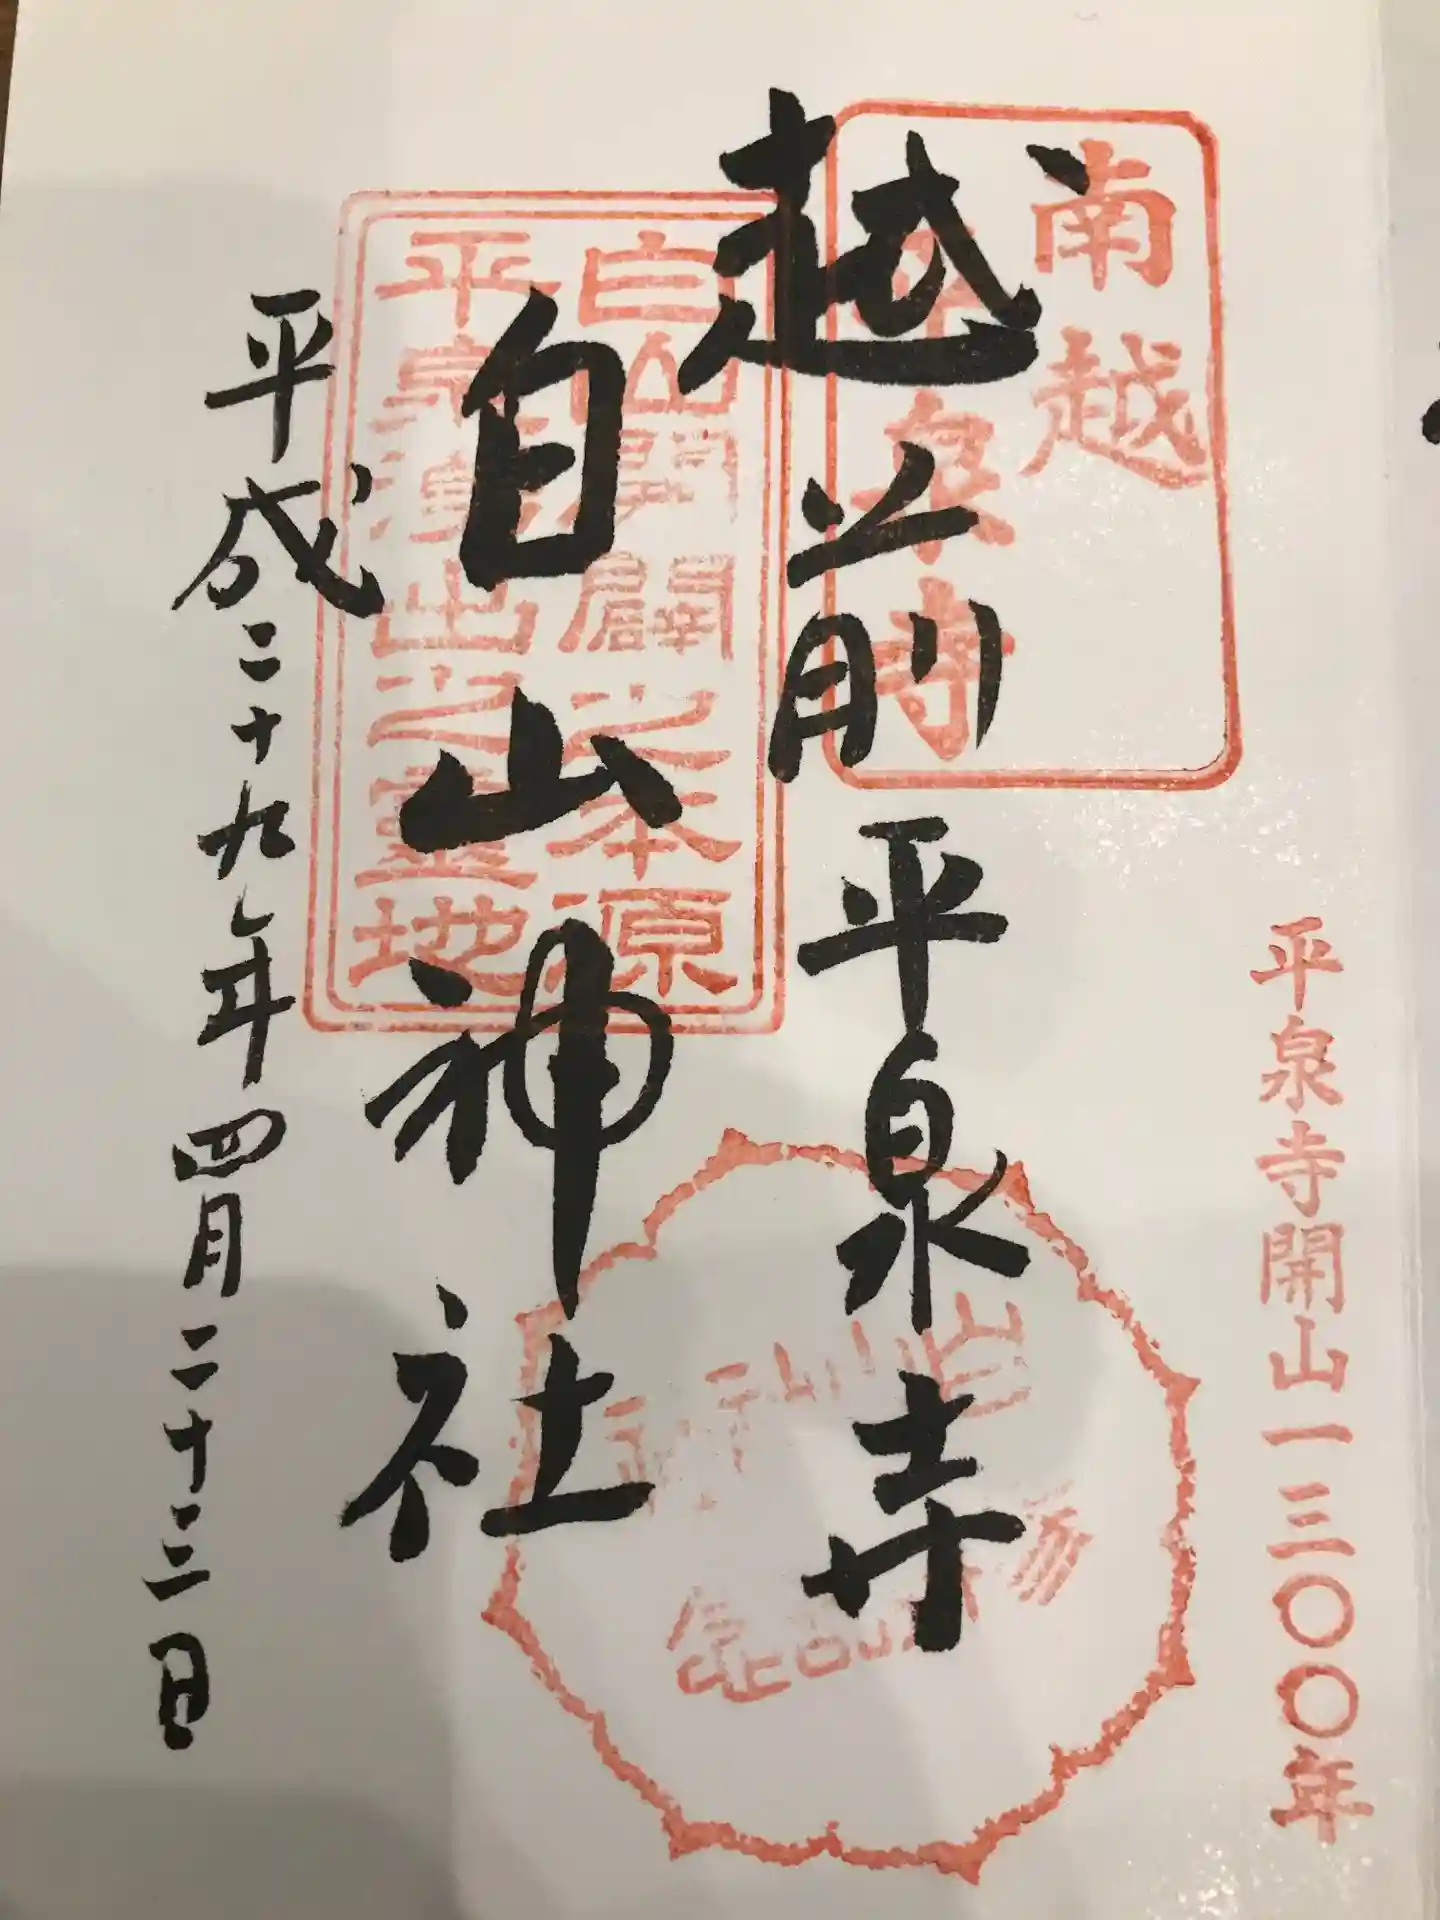 平泉寺開山一三〇〇年
南越
平泉寺
越前平泉寺
白山開闢之本源
平泉湧出之靈地
白山神社
平成二十九年四月二十三日